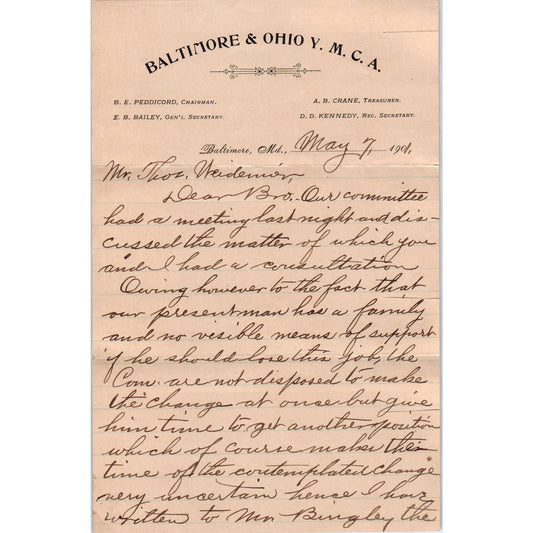 BALTIMORE & OHIO Y. M. C. A.
B. E. PEDDICORD, CHAIRMAN.
A. B. CRANE, TREASURER.
E. B. BAILEY, GEN'L. SECRETARY.
D. D. KENNEDY, REC. SECRETARY.
Baltimore, Md., May 7, 1901,
Mr. Thos. Weidenier,
Dear Bro. Our committee
had a meeting last night and dis-
cussed the matter of which you
and I had a consultation
Owing however to the fact that
our present man has a family
and no visible means of support
if he should lose this job, the
Com. are not disposed to make
the change at once but give
him time to get another position
which of course makes the
time of the contemplated change
very uncertain hence I have
written to Mr. Bingley the